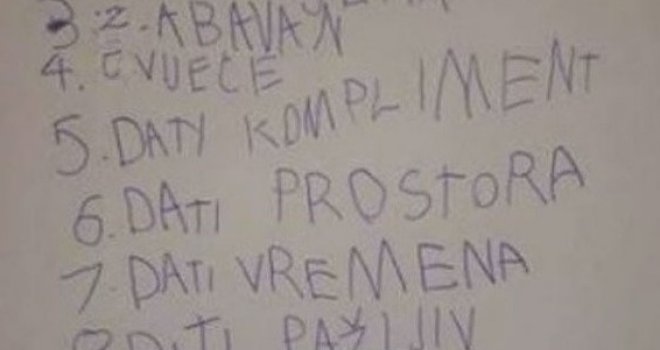 3. Z-ABAVAN
4. CVUECE
5. DATI KOMPLIMENT
6. DATI PROSTORA
7. DATI VREMENA
8 BITI PAŽLJIV